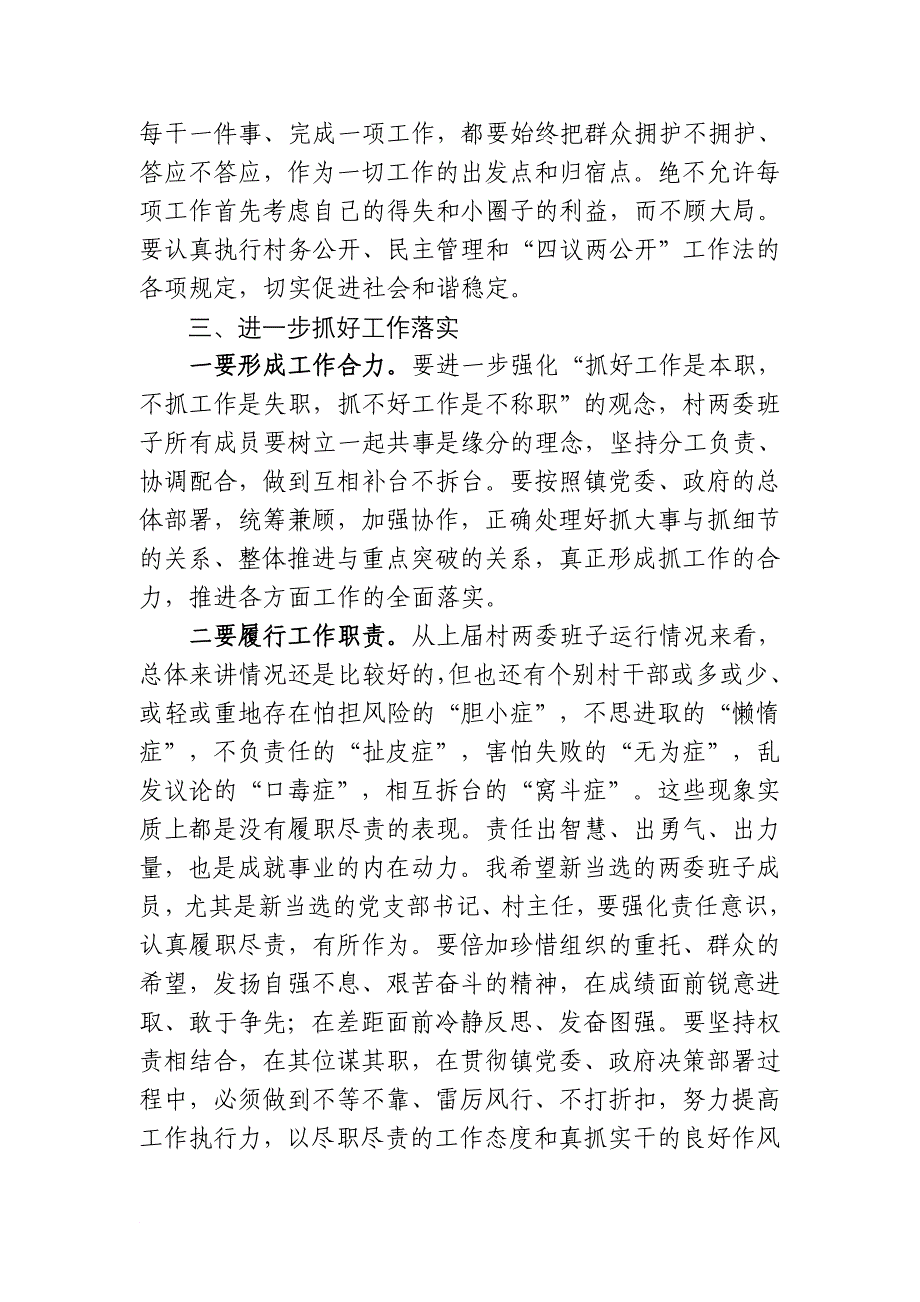 每干一件事、完成一项工作，都要始终把群众拥护不拥护、
答应不答应，作为一切工作的出发点和归宿点。绝不允许每
项工作首先考虑自己的得失和小圈子的利益，而不顾大局。
要认真执行村务公开、民主管理和“四议两公开”工作法的
各项规定，切实促进社会和谐稳定。
三、进一步抓好工作落实
一要形成工作合力。要进一步强化“抓好工作是本职，
不抓工作是失职，抓不好工作是不称职”的观念，村两委班
子所有成员要树立一起共事是缘分的理念，坚持分工负责、
协调配合，做到互相补台不拆台。要按照镇党委、政府的总
体部署，统筹兼顾，加强协作，正确处理好抓大事与抓细节
的关系、整体推进与重点突破的关系，真正形成抓工作的合
力，推进各方面工作的全面落实。
二要履行工作职责。从上届村两委班子运行情况来看，
总体来讲情况还是比较好的，但也还有个别村干部或多或少、
或轻或重地存在怕担风险的“胆小症”，不思进取的“懒惰
症”，不负责任的“扯皮症”，害怕失败的“无为症”，乱
发议论的“口毒症”，相互拆台的“窝斗症”。这些现象实
质上都是没有履职尽责的表现。责任出智慧、出勇气、出力
量，也是成就事业的内在动力。我希望新当选的两委班子成
员，尤其是新当选的党支部书记、村主任，要强化责任意识，
认真履职尽责，有所作为。要倍加珍惜组织的重托、群众的
希望，发扬自强不息、艰苦奋斗的精神，在成绩面前锐意进
取、敢于争先；在差距面前冷静反思、发奋图强。要坚持权
责相结合，在其位谋其职，在贯彻镇党委、政府决策部署过
程中，必须做到不等不靠、雷厉风行、不打折扣，努力提高
工作执行力，以尽职尽责的工作态度和真抓实干的良好作风